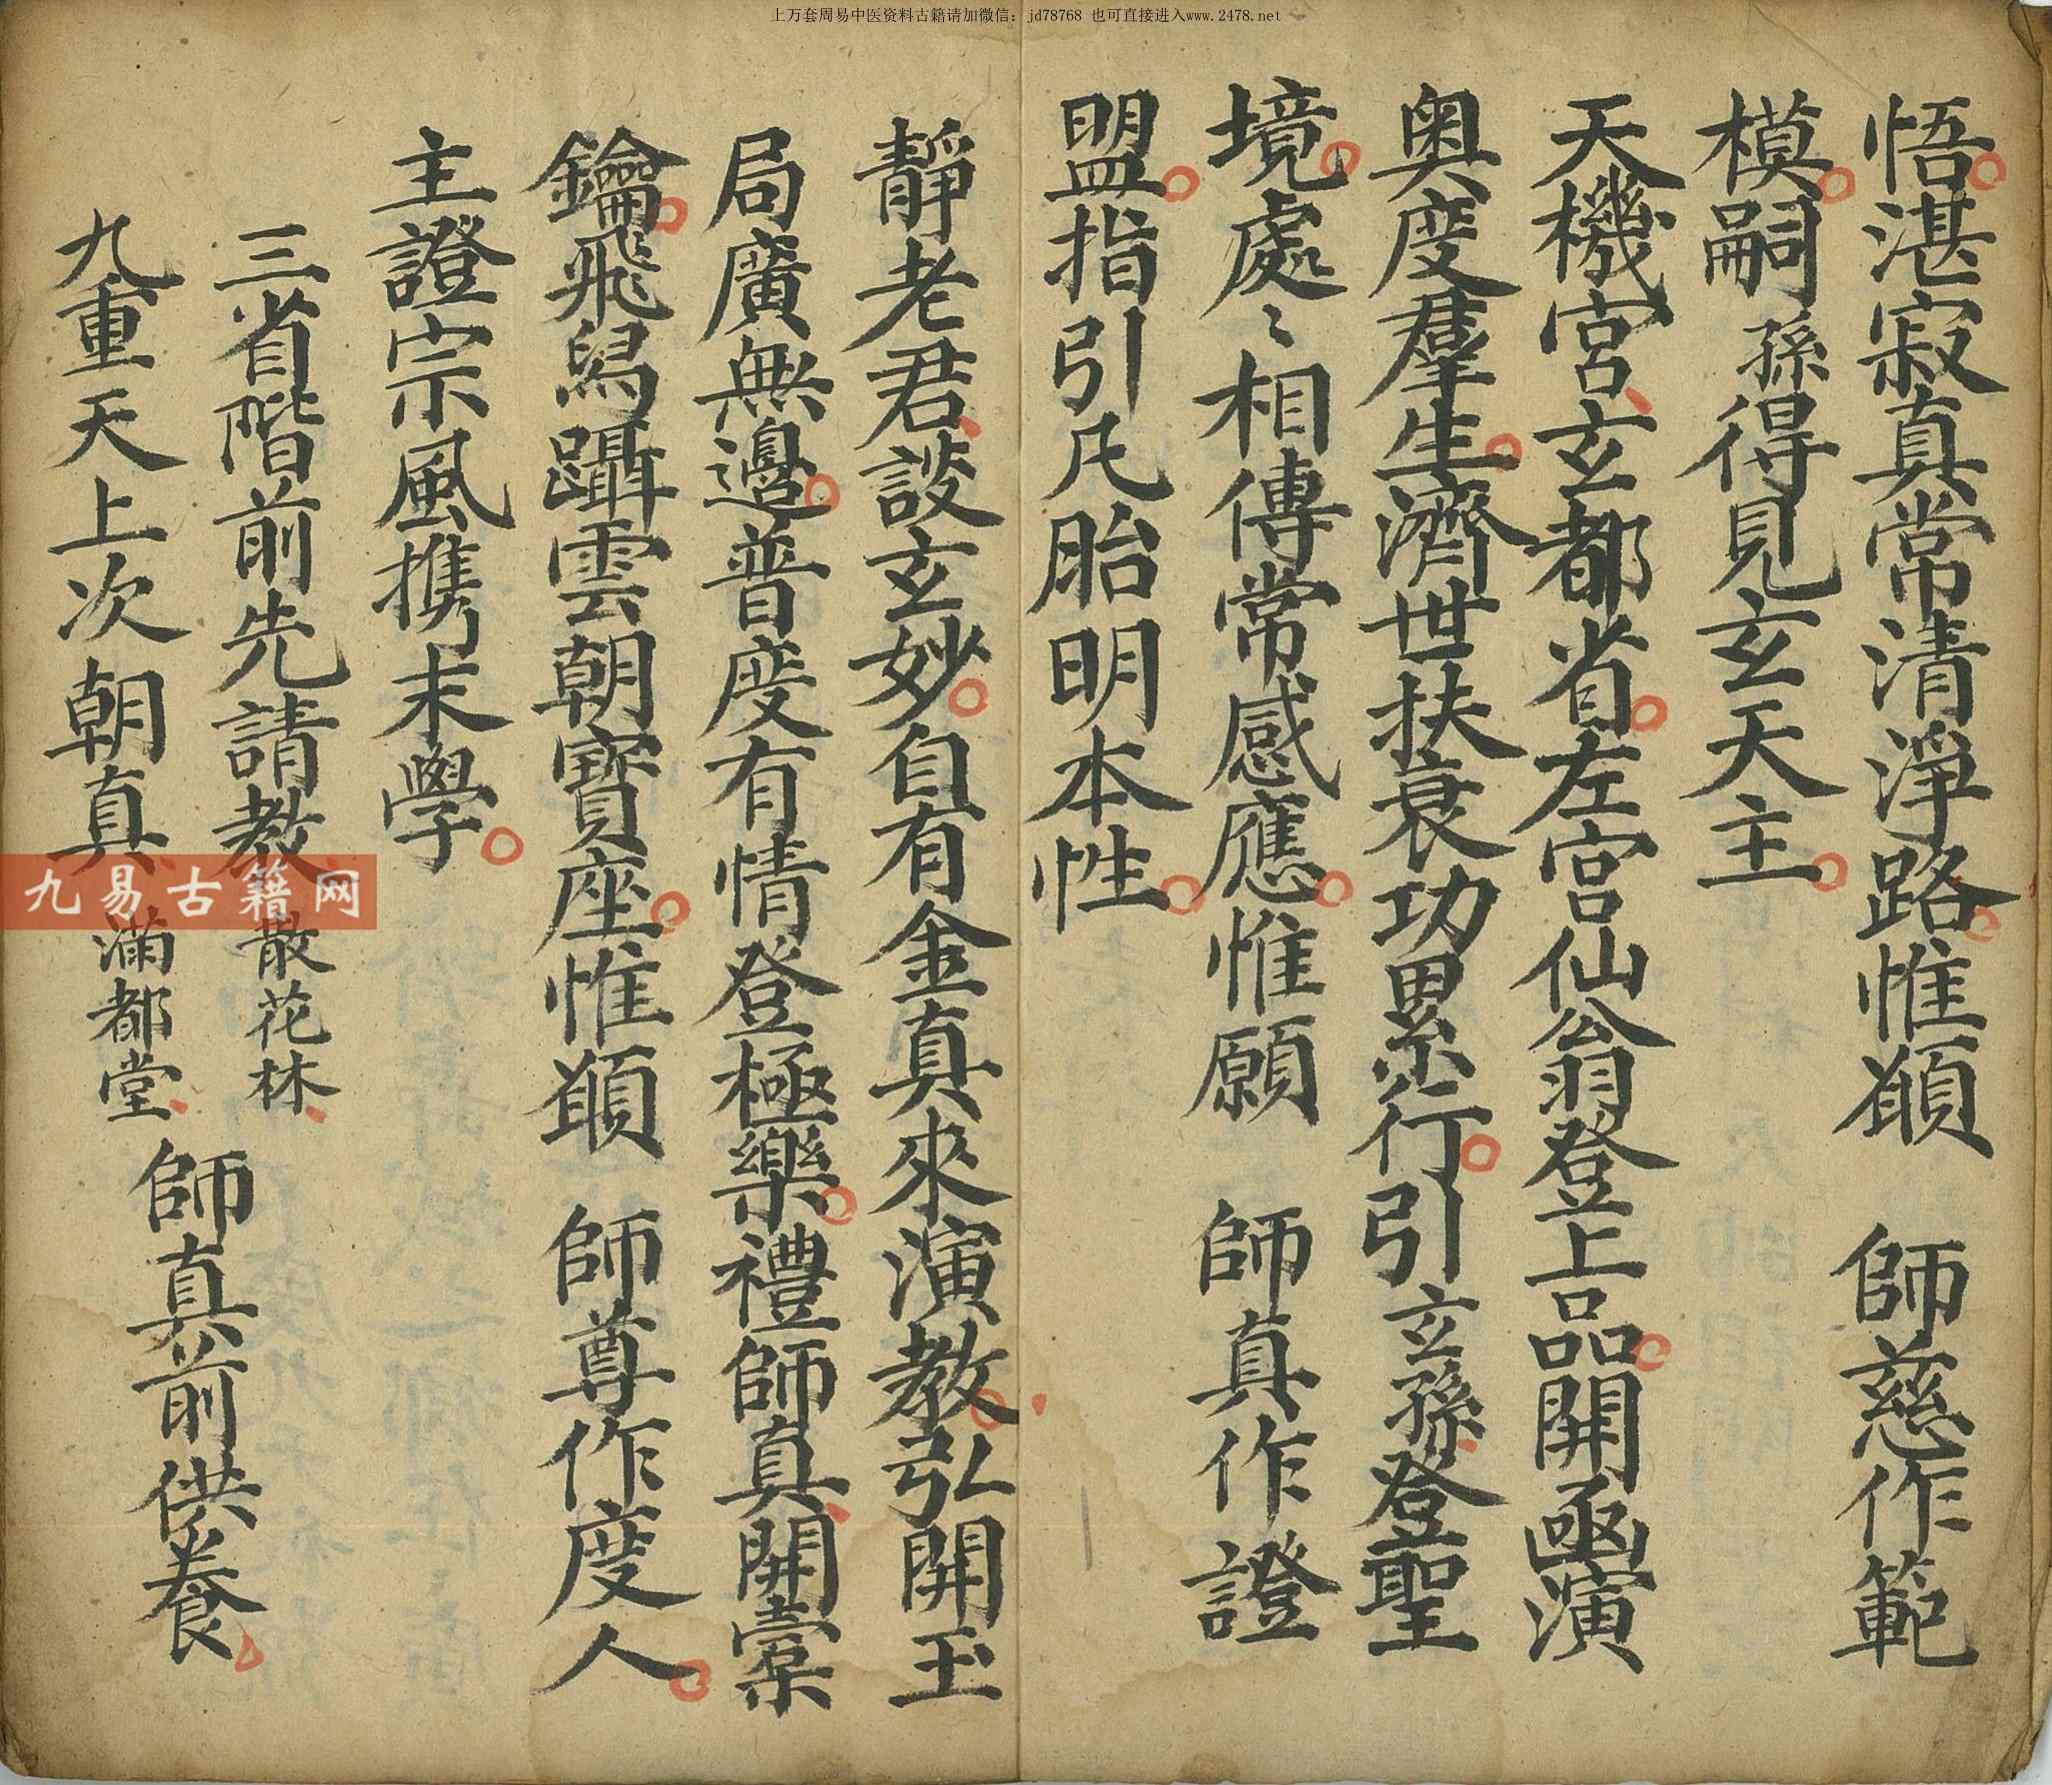 上万套周易中医资料古籍请加微信：jd78768 也可直接进入www.2478.net
悟湛寂真常清淨路惟願 師慈作範
模嗣孫得見玄天主
天機宮玄都省左宮仙翁登上品開函演
奥度羣生濟世扶衰功累行引玄孫登聖
境處〻相傳常感應惟願 師真作證
盟指引凡胎明本性
靜老君談玄妙自有金真來演教弘開玉
局廣無邊普度有情登極樂禮師真開橐
鑰飛舄躡雲朝寶座惟願 師尊作度人
主證宗風携末學
三省階前先請教 散花林
九重天上次朝真 滿都堂
師真前供養
九易古籍网